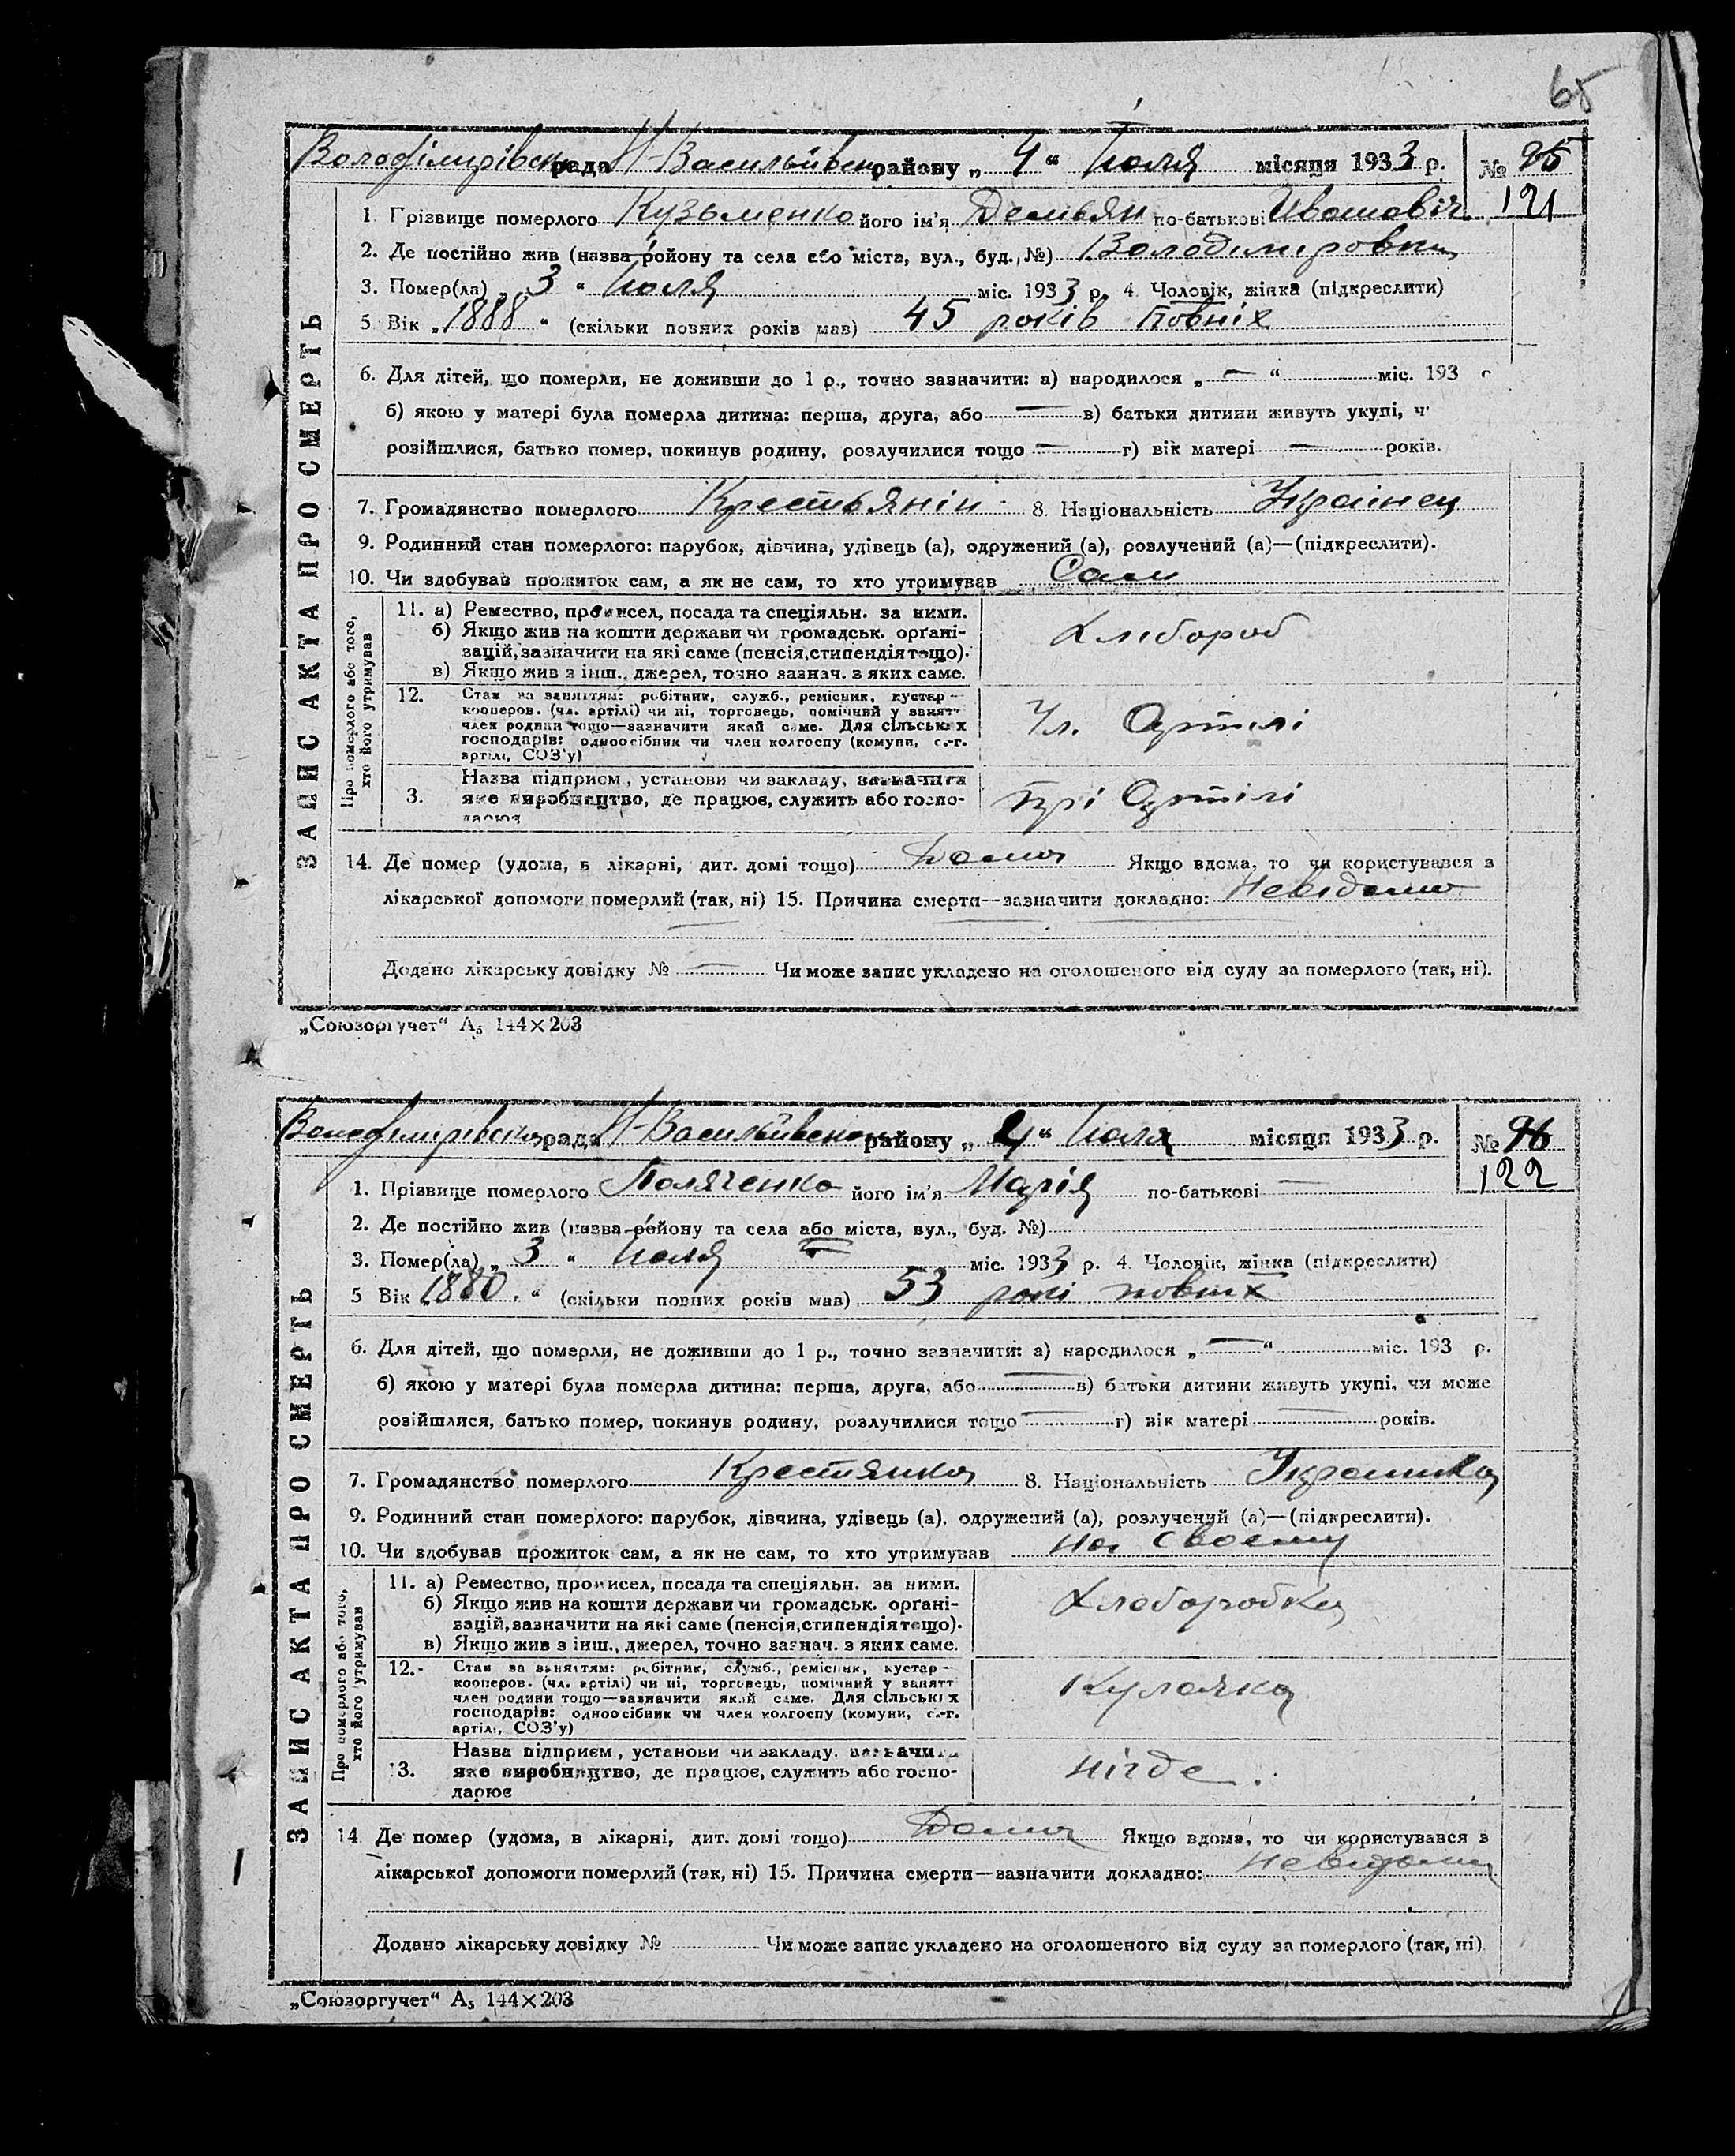 65
Володімірівськ рада Н-Васильївськ району „ 4 “ Июля місяця 1933 р. № 95
121
1. Прізвище померлого Кузьменко його ім'я Демьян по-батькові Ивановіч
2. Де постійно жив (назва району та села або міста, вул., буд., №) Володимировка
3. Помер(ла) „ 3 “ Июля міс. 1933 р. 4. Чоловік, жінка (підкреслити)
5 Вік „ 1888 “ (скільки повних років мав) 45 років повніх
6. Для дітей, що померли, не доживши до 1 р., точно зазначити: а) народилося „ — “ міс. 193
б) якою у матері була померла дитина: перша, друга, або — в) батьки дитини живуть укупі, ч
розійшлися, батько помер, покинув родину, розлучилися тощо — г) вік матері — років.
7. Громадянство померлого Крестьянін 8. Національність Украінец
9. Родинний стан померлого: парубок, дівчина, удівець (а), одружений (а), розлучений (а)—(підкреслити).
10. Чи здобував прожиток сам, а як не сам, то хто утримував Сам
11. а) Ремество, промисел, посада та спеціяльн. за ними.
б) Якщо жив на кошти держави чи громадськ. орґані-
зацій, зазначити на які саме (пенсія, стипендія тощо).
в) Якщо жив з інш., джерел, точно зазнач. з яких саме.
Хлібороб
12. Стан за заняттям: робітник, служб., ремісник, кустар—
кооперов. (чл. артілі) чи ні, торговець, помічний у занятт
член родини тощо—зазначити який саме. Для сільських
господарів: одноосібник чи член колгоспу (комуни, с.-г.
артілі, СОЗ'у)
Чл. Артілі
3. Назва підприєм., установи чи закладу, зазначити
яке виробництво, де працює, служить або госпо-
дарює
Прі Артілі
14. Де помер (удома, в лікарні, дит. домі тощо) Дома Якщо вдома, то чи користувався з
лікарської допомоги померлий (так, ні) 15. Причина смерти—зазначити докладно: Невідома
Додано лікарську довідку № — Чи може запис укладено на оголошеного від суду за померлого (так, ні).
ЗАПИС АКТА ПРО СМЕРТЬ
Про померлого або того,
хто його утримував
„Союзоргучет“ А₅ 144×203
Володімірівська рада Н-Васильївськ району „ 4 “ Июля місяця 1933 р. № 96
122
1. Прізвище померлого Поляченко його ім'я Марія по-батькові —
2. Де постійно жив (назва району та села або міста, вул., буд. №)
3. Помер(ла) „ 3 “ Июля міс. 1933 р. 4. Чоловік, жінка (підкреслити)
5 Вік „ 1880. “ (скільки повних років мав) 53 рокі повних
6. Для дітей, що померли, не доживши до 1 р., точно зазначити: а) народилося „ — “ міс. 193 р.
б) якою у матері була померла дитина: перша, друга, або — в) батьки дитини живуть укупі, чи може
розійшлися, батько помер, покинув родину, розлучилися тощо — г) вік матері — років.
7. Громадянство померлого Крестянка 8. Національність Украинка
9. Родинний стан померлого: парубок, дівчина, удівець (а), одружений (а), розлучений (а)—(підкреслити).
10. Чи здобував прожиток сам, а як не сам, то хто утримував На своему
11. а) Ремество, промисел, посада та спеціяльн. за ними.
б) Якщо жив на кошти держави чи громадськ. орґані-
зацій, зазначити на які саме (пенсія, стипендія тощо).
в) Якщо жив з інш., джерел, точно зазнач. з яких саме.
Хлеборобка
12.- Стан за заняттям: робітник, служб., ремісник, кустар—
кооперов. (чл. артілі) чи ні, торговець, помічний у занятт
член родини тощо—зазначити який саме. Для сільських
господарів: одноосібник чи член колгоспу (комуни, с.-г.
артілі, СОЗ'у)
Кулачка
13. Назва підприєм., установи чи закладу, зазначити
яке виробництво, де працює, служить або госпо-
дарює
Нігде.
14 Де помер (удома, в лікарні, дит. домі тощо) Дома Якщо вдома, то чи користувався з
лікарської допомоги померлий (так, ні) 15. Причина смерти—зазначити докладно: Невідома
Додано лікарську довідку № Чи може запис укладено на оголошеного від суду за померлого (так, ні)
ЗАПИС АКТА ПРО СМЕРТЬ
Про померлого або того,
хто його утримував
„Союзоргучет“ А₅ 144×203